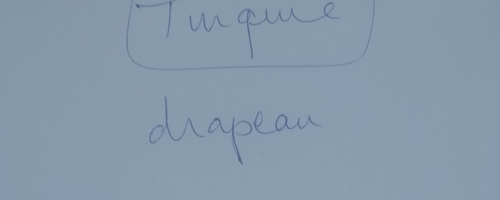 Turquie
drapeau